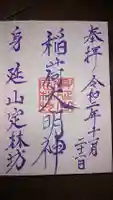 奉拝 令和二年十一月二十二日
稲荷大明神
身延山定林坊